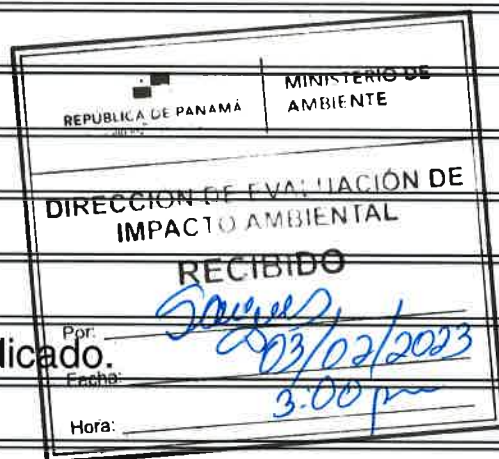 REPÚBLICA DE PANAMÁ
MINISTERIO DE
AMBIENTE
DIRECCION DE EVALUACIÓN DE
IMPACTO AMBIENTAL
RECIBIDO
Por:
dicado.
Fecha: 03/02/2023
Hora: 3:00 pm